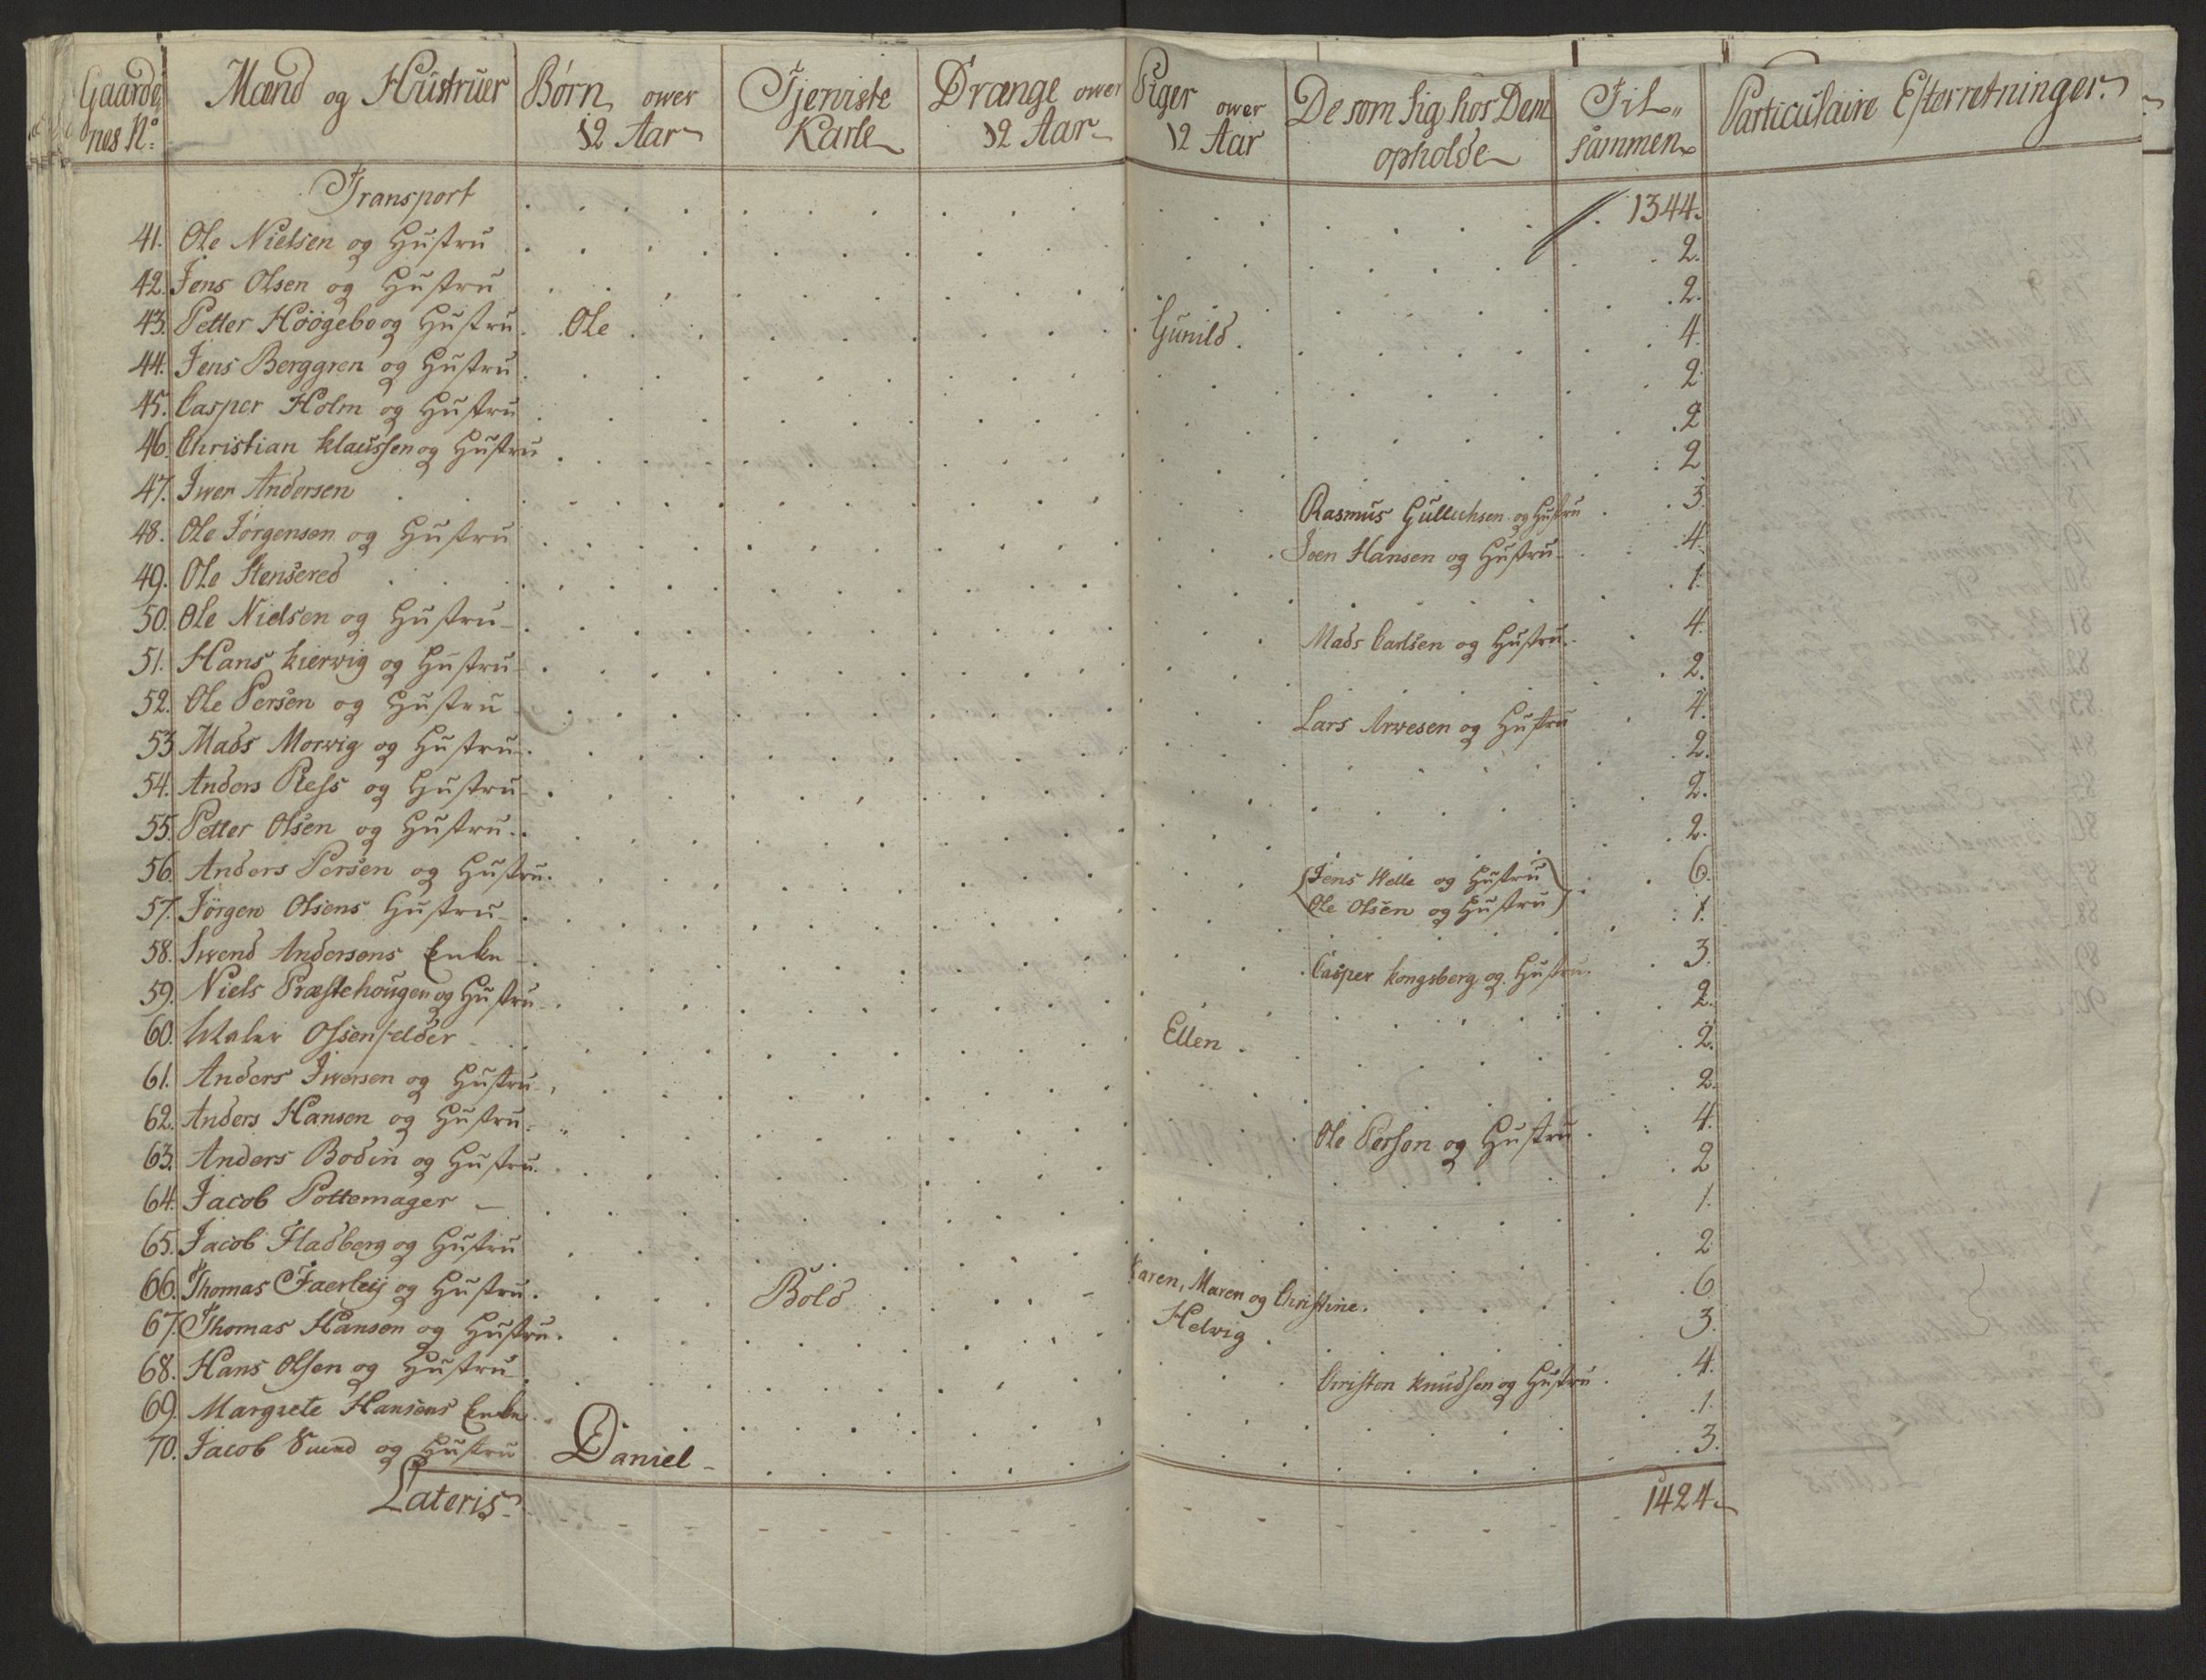 Gaarde nes No: Mænd og Hustruer Børn ower 12 Aar Tjeniste Karle Drænge ower 12 Aar Piger ower 12 Aar De som sig hos Dem opholde Til„ sammen Particulaire Efterretninger.
Transport 1344.
41. Ole Nielsen og Hustru 2.
42. Jens Olsen og Hustru 2.
43. Petter Höögebo og Hustru Ole Gunild 4.
44. Jens Berggren og Hustru 2.
45. Casper Holm og Hustru 2
46. Christian Klaussen og Hustru 2
47. Iwer Andersen Rasmus Gullichsen og Hustru 3.
48. Ole Jörgensen og Hustru Joen Hansen og Hustru 4.
49. Ole Stensered 1.
50. Ole Nielsen og Hustru Mads Carlsen og Hustru 4.
51. Hans Kierwig og Hustru 2.
52. Ole Persen og Hustru Lars Arwesen og Hustru 4.
53 Mads Morwig og Hustru 2.
54. Anders Ress og Hustru 2.
55. Petter Olsen og Hustru 2.
56. Anders Persen og Hustru Jens Helle og Hustru 6.
Ole Olsen og Hustru
57. Jörgen Olsens Hustru 1.
58. Swend Andersens Enke Casper Kongsberg og Hustru 3.
59. Niels Præstehougen og Hustru 2.
60. Maler Ossenfelder Ellen 2.
61. Anders Iwersen og Hustru 2.
62. Anders Hansen og Hustru Ole Persen og Hustru 4.
63. Anders Bodin og Hustru 2
64. Jacob Pottemager 1.
65. Jacob Fladberg og Hustru 2
66. Thomas Faerleij og Hustru Bold Karen, Maren og Christine 6.
67. Thomas Hansen og Hustru Helvig 3.
68. Hans Olsen og Hustru Christen Knudsen og Hustru 4.
69. Margrete Hansens Enke 1.
70. Jacob Sund og Hustru Daniel 3.
Lateris 1424.